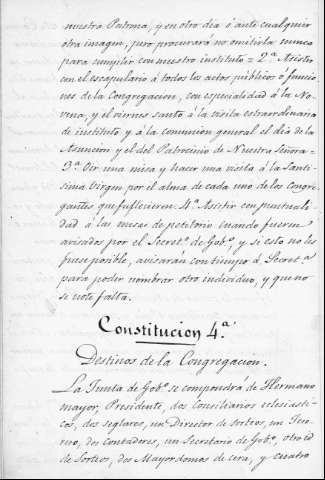 nuestra Patrona, y en otro dia ó ante cualquier
otra imagen, pero procurará no omitirla nunca
para cumplir con nuestro instituto = 2ª Asistir
con el escapulario á todos los actos públicos ó funcio-
nes de la Congregacion, con especialidad á la No-
vena, y el viernes santo á la visita estraordinaria
de instituto, y á la comunion general el dia de la
Asuncion y el del Patrocinio de Nuestra Señora =
3ª Oir una misa y hacer una visita á la Santi-
sima Virgen por el alma de cada uno de los Congre-
gantes que fallecieren. 4ª Asistir con puntuali-
dad á las mesas de petitorio cuando fueren
avisados por el Secretº de Gobº, y si esto no les
fuese posible, avisarán con tiempo á Secretª
para poder nombrar otro individuo, y que no
se note falta.
Constitucion 4ª
Destinos de la Congregacion.
La Junta de Gobº se compondrá de Hermano
mayor, Presidente, dos Consiliarios eclesiasti-
cos, dos seglares, un Director de sorteos, un Teso-
rero, dos Contadores, un Secretario de Gobº, otro id
de Sorteos, dos Mayordomos de cera, y cuatro